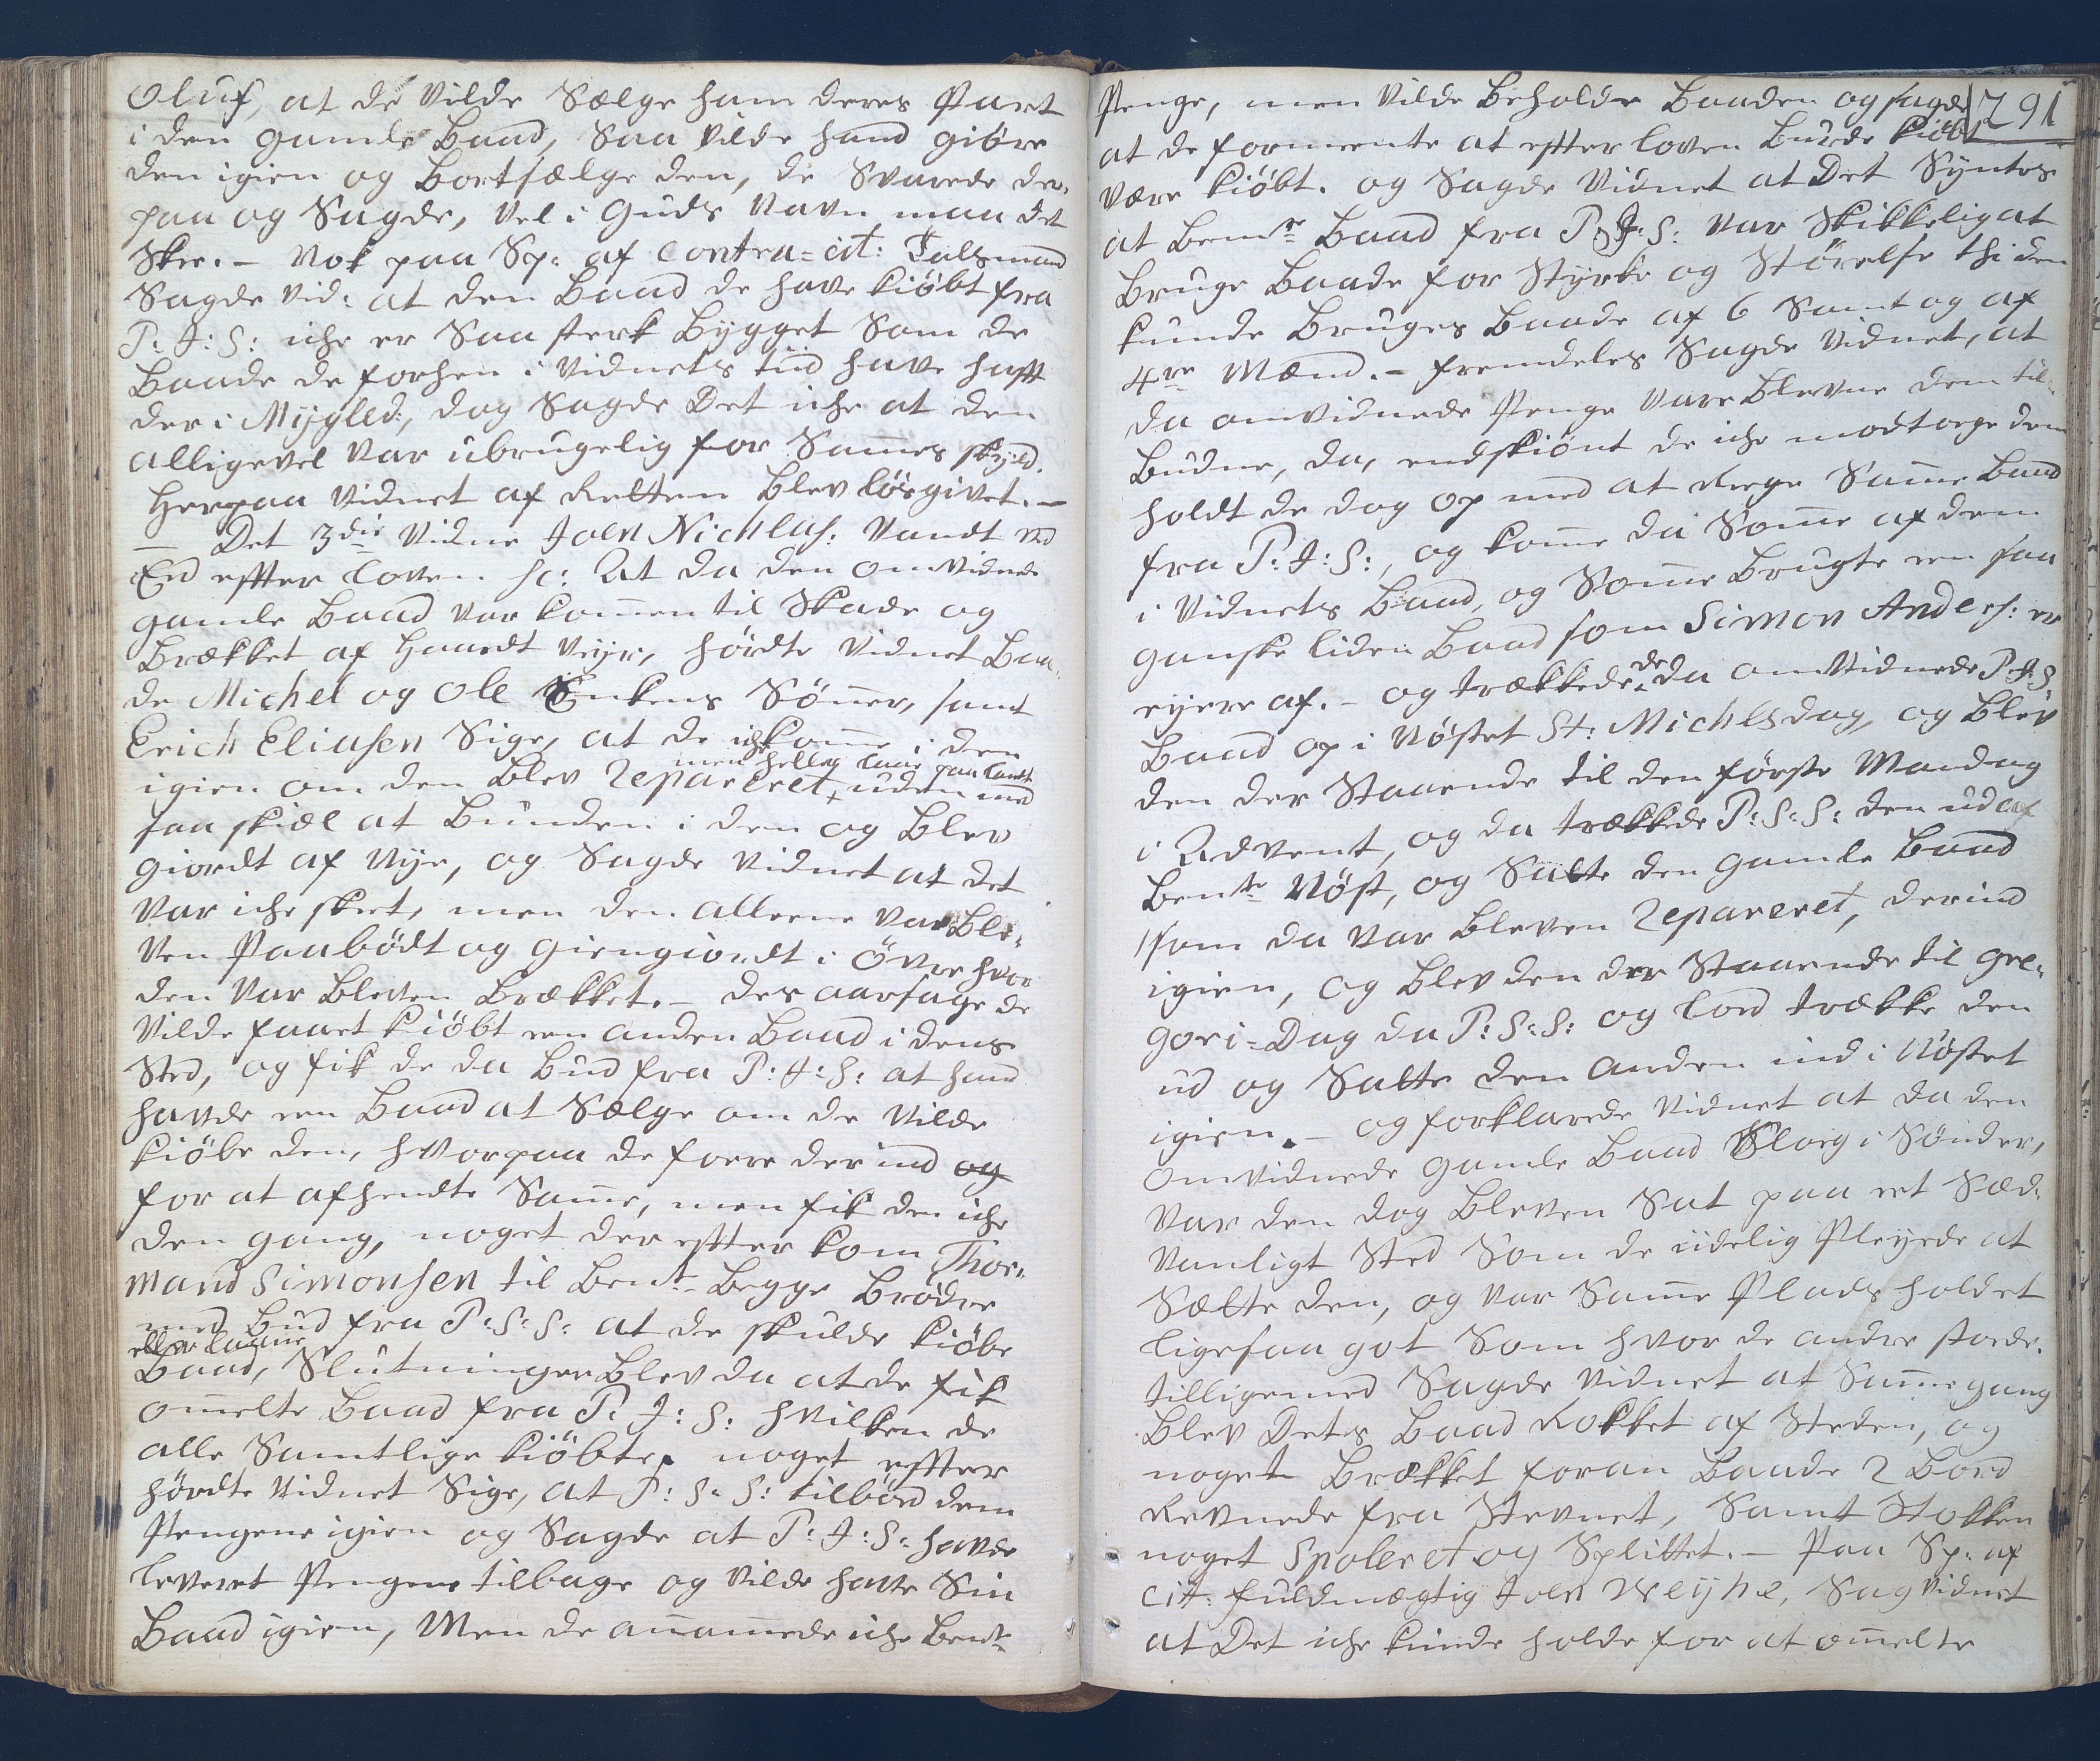 Oluf, at de vilde Sælge ham deres Part
i den gamle Baad, Saa vilde hand giöre
den igien og Bortsælge den, de Svarede der,,
paa og Sagde, vel i Guds Navn maa det
Skee. – Nok paa Sp: af Contra=cit: Talsmand
Sagde vid: at den Baad de have kiöbt fra
P: J: S: iche er Saa sterk Bygget Som de
Baade de forhen i Vidnets tiid have hafft
der i Mygled:, dog Sagde Det iche at den
alligevel var ubrugelig for Sam̄es skyld.
Herpaa Vidnet af Retten blev lösgivet. –
– Det 3die Vidne Joen Nichlas: vandt ved
Eed effter Loven sc: At da den omvidnede
gamle Baad var kom̄en til Skade og
Brækket af Haardt Veyr, hördte Vidnet Baa,,
de Michel og Ole Enkens Sön̄er, samt
Erich Eliasen Sige, at de iche kom̄e i den
igien om den Blev Repareret, men heller være paa Landt uden med
saa skiæl at Bunden i den og Blev
giordt af Nye, og Sagde Vidnet at det
var iche skeet, men den alleene var Ble,,
ven Paabödt og giengiordt i över hvor
den var Bleven Brækket. – des aarsage de
Vilde faaet kiöbt een anden Baad i dens
Sted, og fik de da Bud fra P: J: S: at hand
havde een Baad at Sælge om de vilde
kiöbe den, hvorpaa de foere der ind og
for at afhendte Sam̄e, men fik den iche
den gang, noget der effter kom Thor,,
mand Simonsen til Bemte Begge Brödre
med Bud fra P: S: S: at de skulde kiöbe
eller laane
Baad, Slutningen Blev da at de fik
om̄elte Baad fra P: J: S: hvilken de
alle Samtlige kiöbte, noget effter
hördte Vidnet Sige, at P: S: S: tilböd dem
Pengene igien og Sagde at P: J: S: havde
leveret Pengene tilbage og vilde have Sin
Baad igien, Men de an̄am̄ede iche Bemte
291
Penge, men vilde Beholde Baaden og sagde
at de formeente at effter Loven Burde kiöbt
være kiöbt. og Sagde Vidnet at Det Syntes
at Bemte Baad fra P: J: S: var Skikkelig at
Bruge Baade for Styrke og Störelse thi den
kunde Bruges Baade af 6 Samt og af
4re Mænd. – fremdeeles Sagde Vidnet, at
da omvidnede Penge vare Blevne dem til,,
Budne, da, endskiönt de iche modtoge dem
holdt de dog op med at Roge Sam̄e Baad
fra P: J: S:, og kom̄e da Som̄e af dem
i Vidnets Baad, og Som̄e Brugte een saa
ganske liden Baad som Simon Anders: er
eyere af. – og trækkede de da omvidnede P: J: S
Baad op i Nöstet St: Michelsdag, og Blev
den der Staaende til den förste Mandag
i Advent, og da trækkede P: S: S: den ud af
Bemte Nöst, og Satte den gamle Baad
som da var Bleven Repareret, derind
igien, og Blev den der Staaende til Gre,,
gori=Dag da P: S: S: og lod trække den
ud og Satte den anden ind i Nöstet
igien. – og forklarede Vidnet at da den
omvidnede gamle Baad Sloeg i Sönder,
var den dog Bleven Sat paa et Sæd,,
vanligt Sted Som de iidelig Pleyede at
Sætte den, og var Sam̄e Plads holdet
ligesaa got Som hvor de andre stode.
tilligemed Sagde Vidnet at Sam̄e gang
Blev Dets Baad Rokket af Steden, og
noget Brækket foran Baade 2 Bord
Revnede fra Stevnet, Samt Stokken
noget Spoleret og Splittet. – Paa Sp: af
Cit: fuldmægtig Joen Weyhe, Sag Vidnet
at Det iche kunde holde for at om̄elte